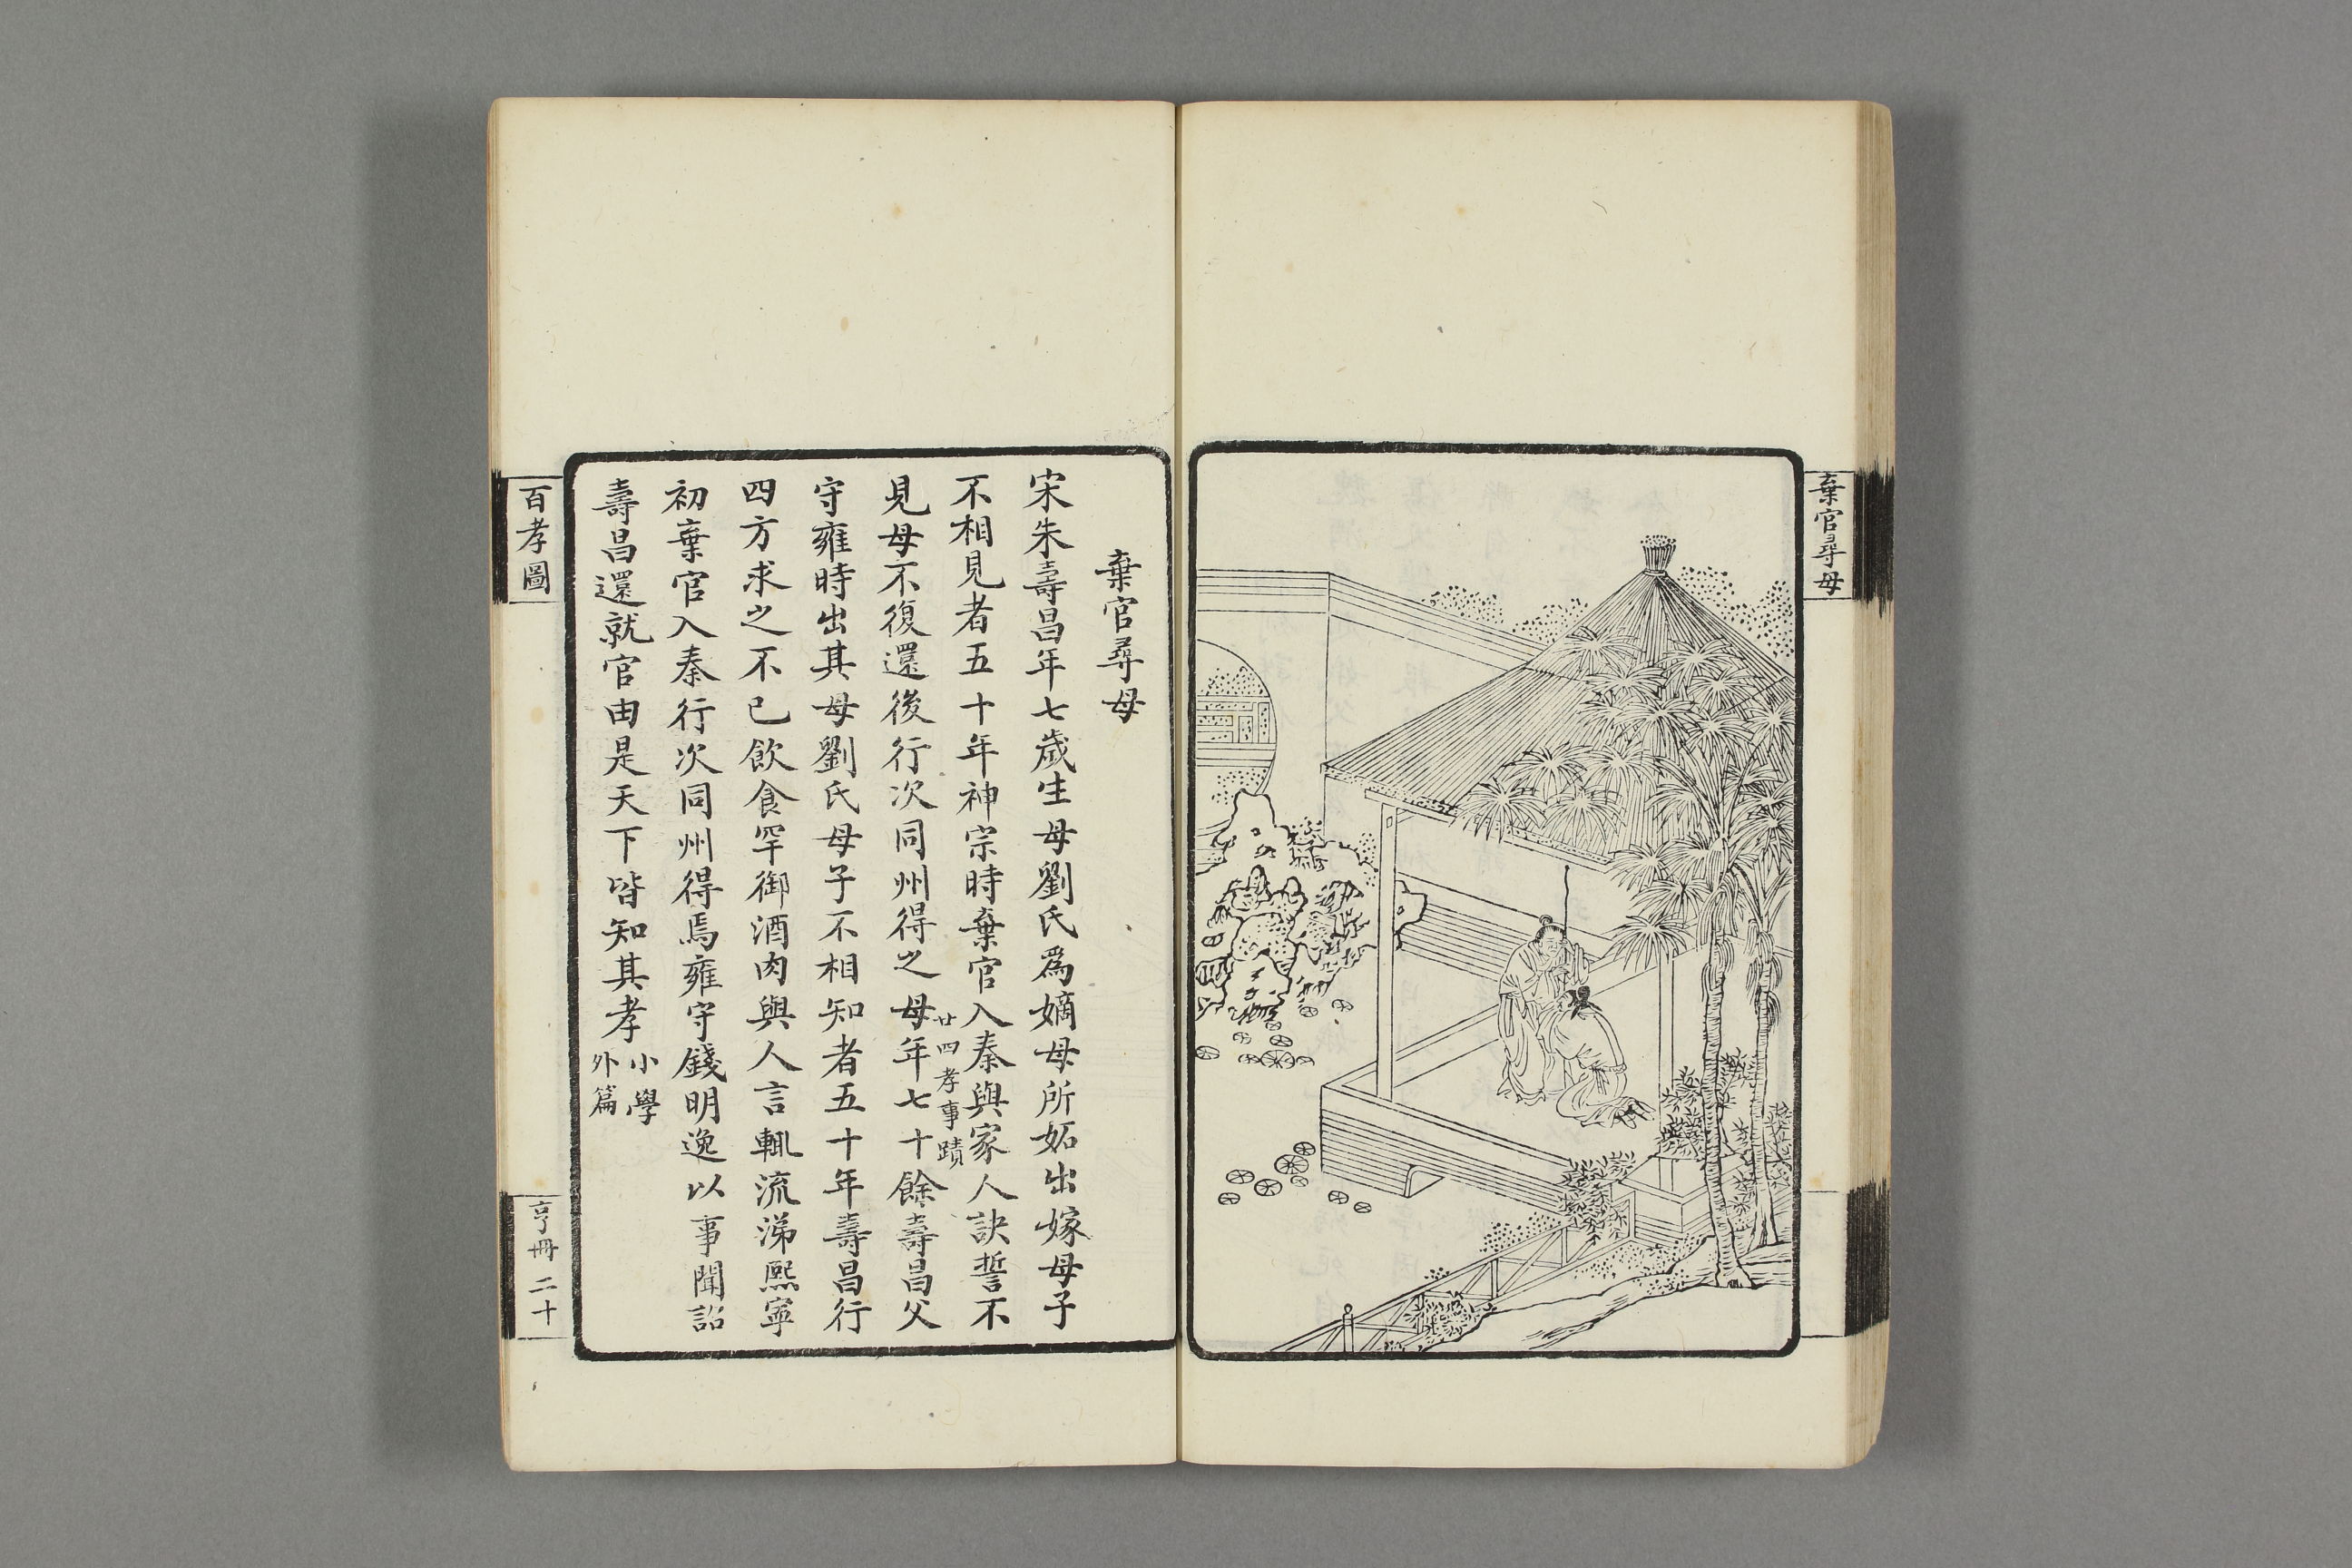 棄官尋母
棄官尋母
宋朱壽昌年七歲生母劉氏爲嫡母所妬出嫁母子
不相見者五十年神宗時棄官入秦與家人訣誓不
見母不復還後行次同州得之母年七十餘壽昌父
廿四孝事蹟
守雍時出其母劉氏母子不相知者五十年壽昌行
四方求之不已飲食罕御酒肉與人言輒流涕熙寧
初棄官入秦行次同州得焉雍守錢明逸以事聞詔
壽昌還就官由是天下皆知其孝
小學
外篇
百孝圖
亨冊 二十